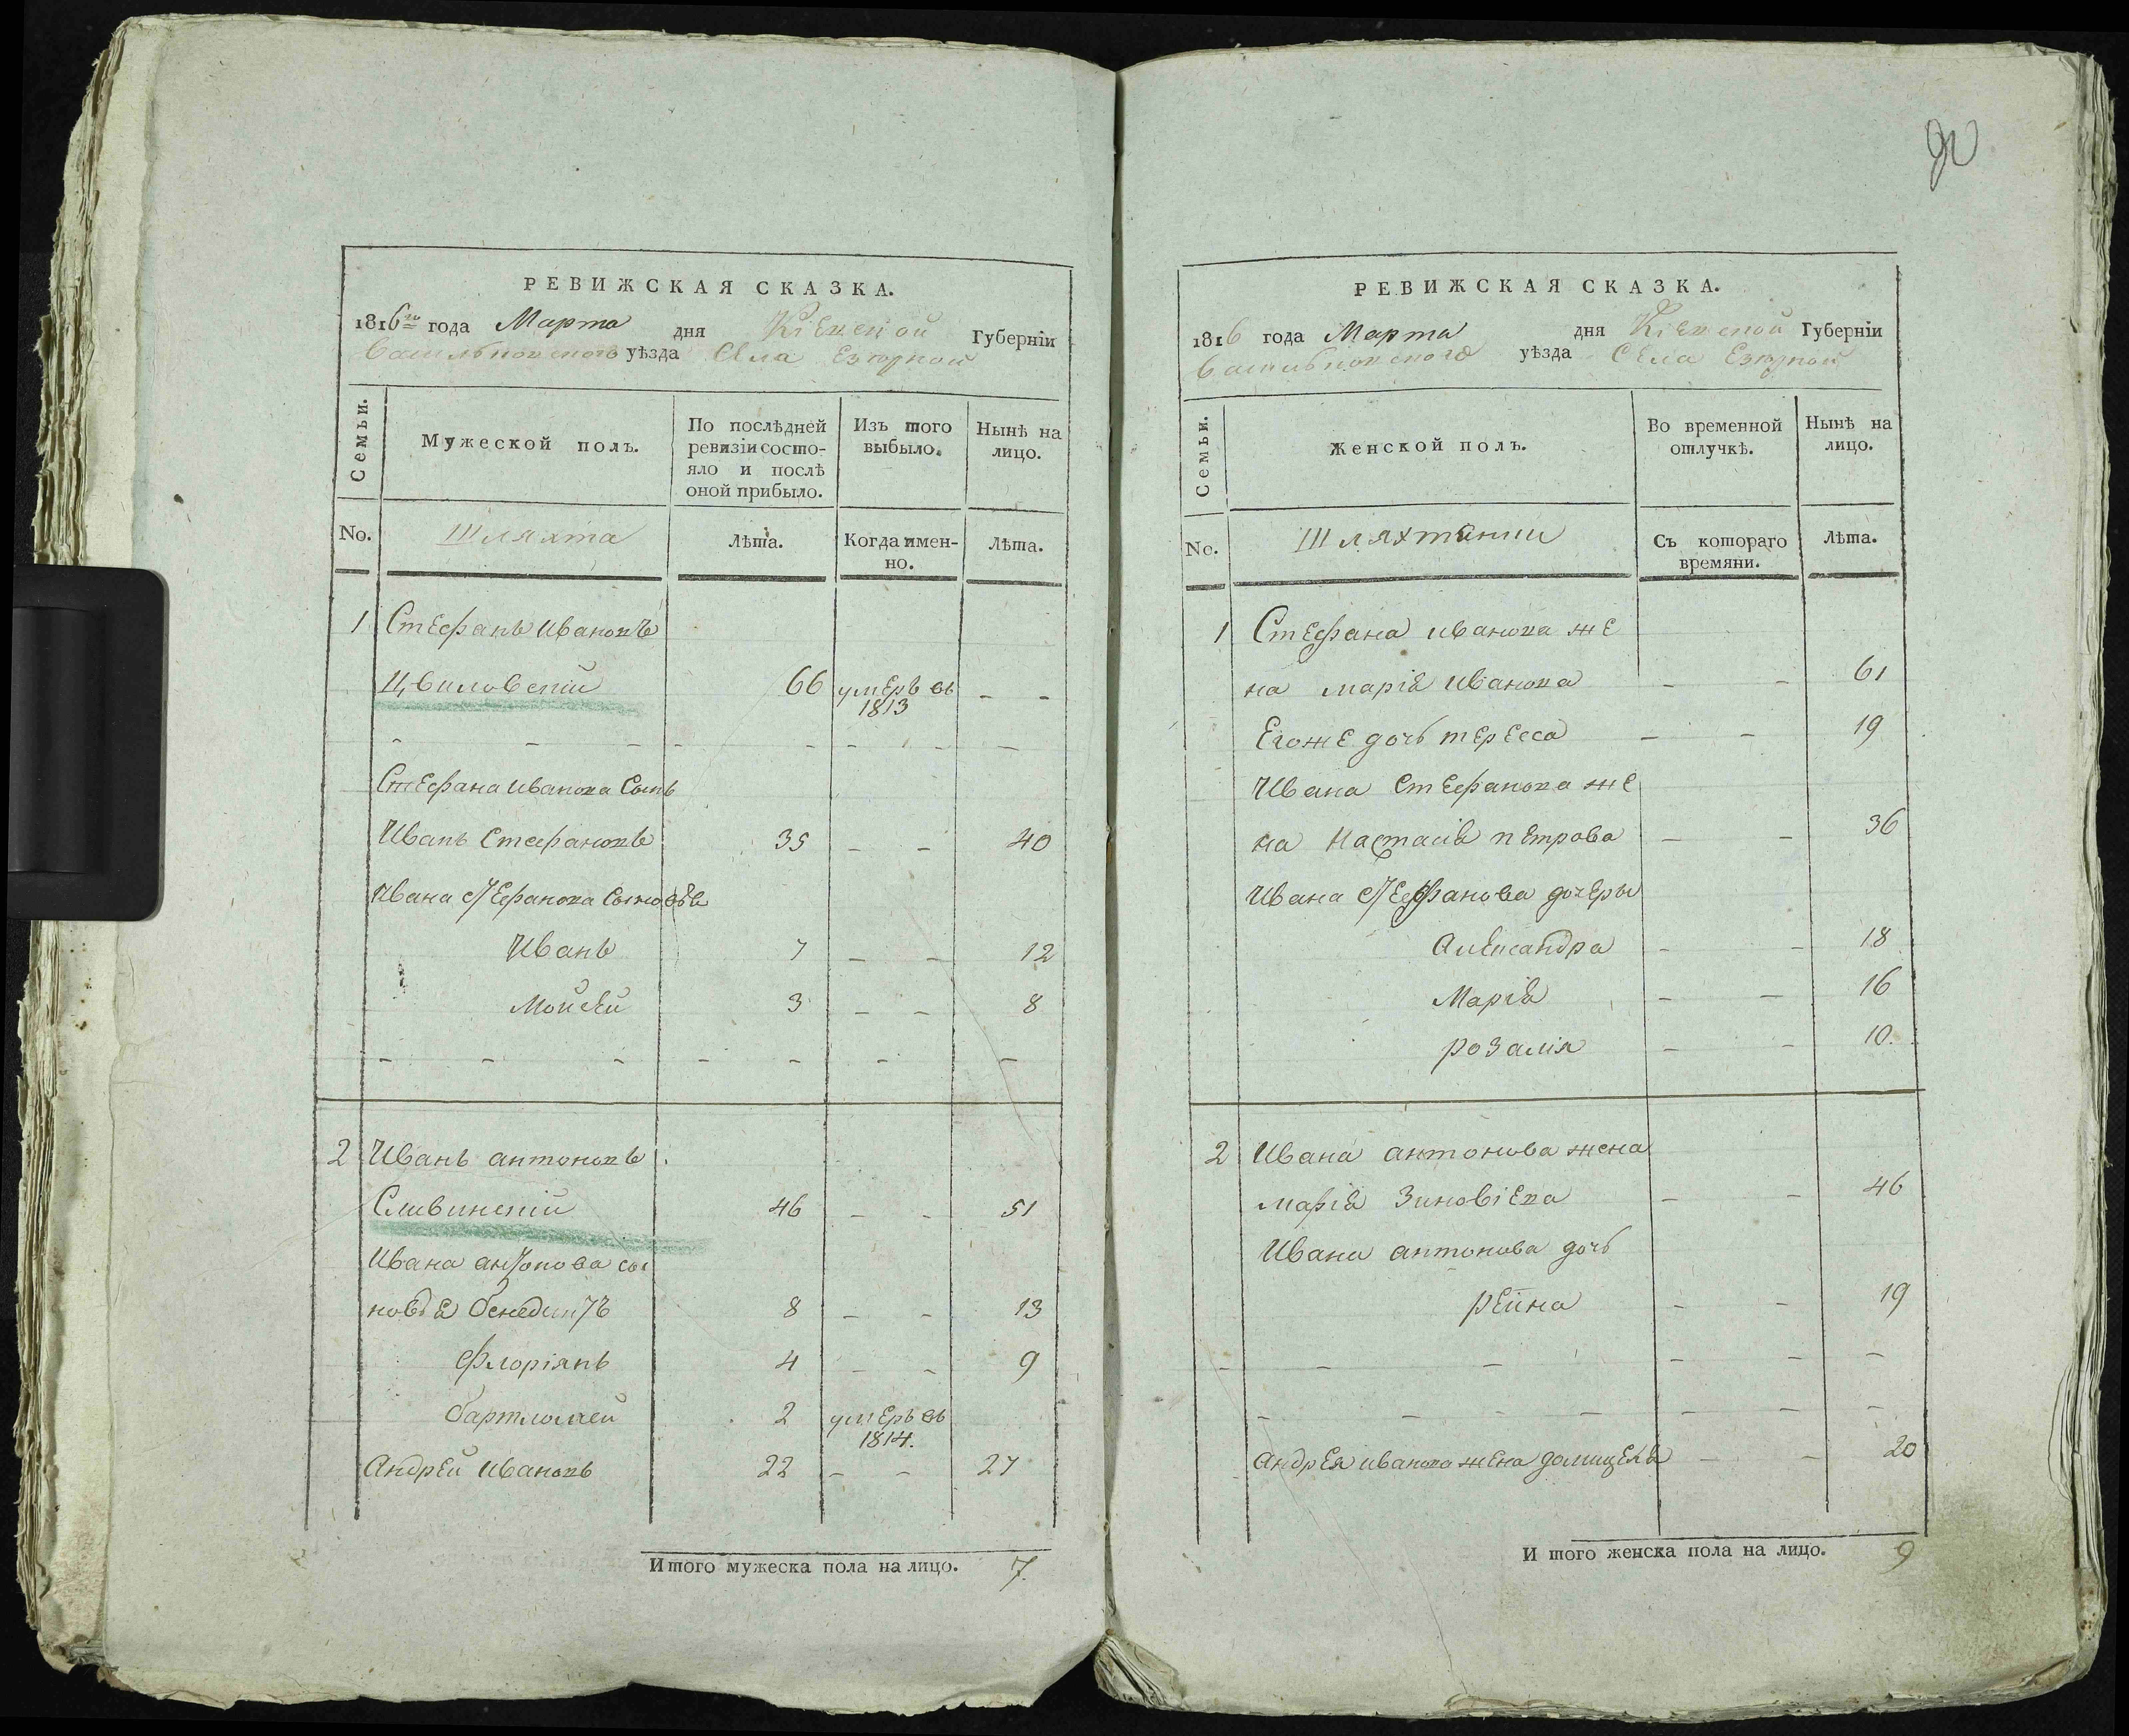 РЕВИЖСКАЯ СКАЗКА.
1816го года Марта дня Кіевской Губерніи
Васильковского уѣзда Села Езюрной
Семьи.
Мужеской полъ.
По послѣдней ревизіи состо-
яло и послѣ
оной прибыло.
Изъ того
выбыло.
Нынѣ на
лицо.
No.
Шляхта
Лѣта.
Когда имен-
но.
Лѣта.
1 Стефанъ Ивановъ
Цвиловскій 66 умеръ въ 1813 - -
Стефана Иванова Сынъ
Иванъ Стефановъ 35 - - 40
Ивана Стефанова Сыновья
Иванъ 7 - - 12
Мойсей 3 - - 8
2 Иванъ антоновъ
Сливинскій 46 - - 51
Ивана антонова сы
новья бенедиктъ 8 - - 13
Флоріянъ 4 - - 9
бартломей 2 умеръ въ 1814.
Андрей Ивановъ 22 - - 27
Итого мужеска пола на лицо. 7.
РЕВИЖСКАЯ СКАЗКА.
1816 года Марта дня Кіевской Губерніи
Васильковского уѣзда Села Езюрной
Семьи.
Женской полъ.
Во временной
отлучкѣ.
Нынѣ на
лицо.
No.
Шляхтянки
Съ котораго
времяни.
Лѣта.
1 Стефана иванова же
на марія Иванова - - 61
Егоже дочь тересса - - 19
Ивана Стефанова же
на Настасія петрова - - 36
Ивана Стефанова дочеры
Александра - - 18
Марія - - 16
розалія - - 10.
2 Ивана антонова жена
марія Зиновіева - - 46
Ивана антонова дочь
рейна - - 19
андрея иванова жена домицеля - - 20
И того женска пола на лицо. 9